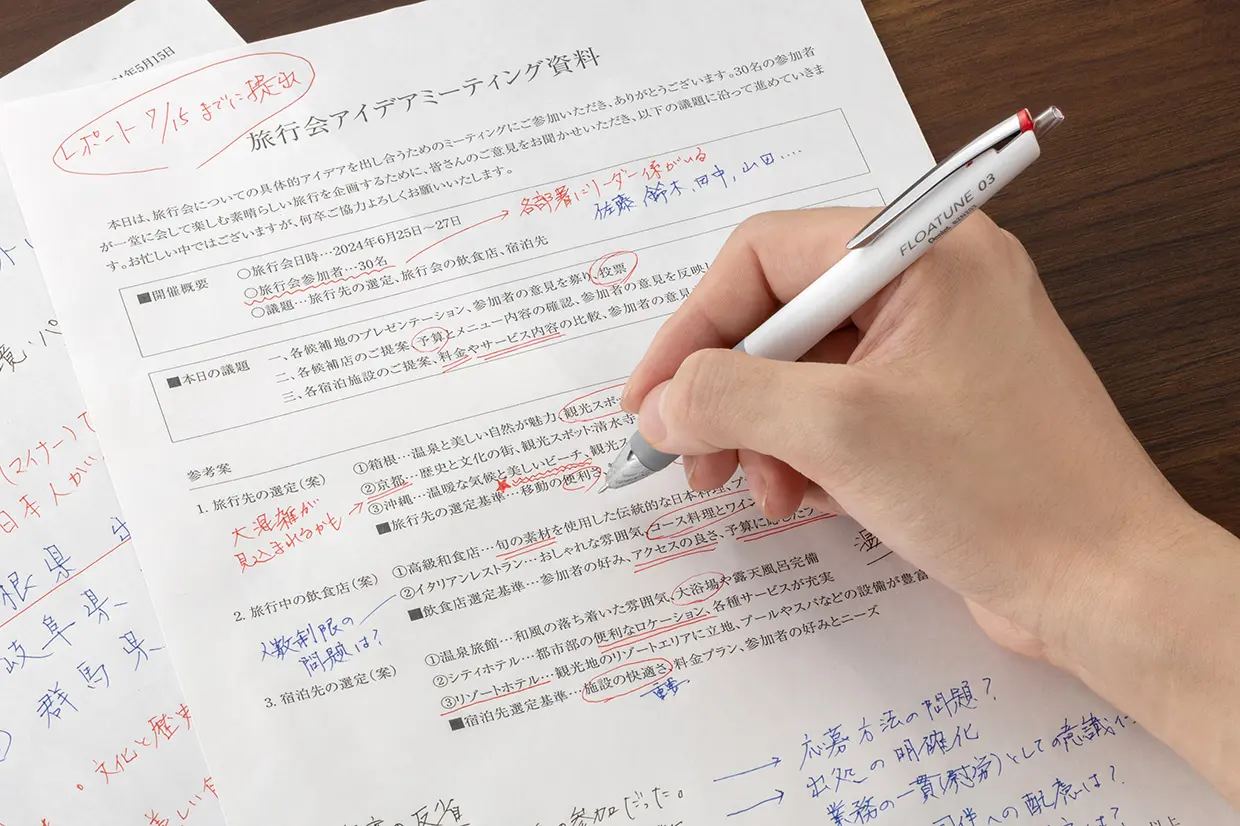 年5月15日
レポート 7/15までに提出
旅行会アイデアミーティング資料
本日は、旅行会についての具体的アイデアを出し合うためのミーティングにご参加いただき、ありがとうございます。30名の参加者
が一堂に会して楽しむ素晴らしい旅行を企画するために、皆さんのご意見をお聞かせいただき、以下の議題に沿って進めていきま
す。お忙しい中ではございますが、何卒ご協力よろしくお願いいたします。
各部署にリーダー係がいる
佐藤、鈴木、田中、山田....
■開催概要
○旅行会日時…2024年6月25日~27日
○旅行会参加者…30名
○議題…旅行先の選定、旅行会の飲食店、宿泊先
■本日の議題
一、各候補地のプレゼンテーション、参加者の意見を募り、投票
二、各候補店のご提案、予算とメニュー内容の確認、参加者の意見を反映し
三、各宿泊施設のご提案、料金やサービス内容の比較、参加者の意見
参考案
1. 旅行先の選定(案)
①箱根…温泉と美しい自然が魅力、観光スポッ
②京都…歴史と文化の街、観光スポット:清水寺
③沖縄…温暖な気候と美しいビーチ、観光ス
■旅行先の選定基準…移動の便利さ
大混雑が
見込まれるかも
2. 旅行中の飲食店(案)
①高級和食店…旬の素材を使用した伝統的な日本料理、プ
②イタリアンレストラン…おしゃれな雰囲気、コース料理とワイン
■飲食店選定基準…参加者の好み、アクセスの良さ、予算に応じたプ
人数制限の
問題は?
3. 宿泊先の選定(案)
①温泉旅館…和風の落ち着いた雰囲気、大浴場や露天風呂完備
②シティホテル…都市部の便利なロケーション、各種サービスが充実
③リゾートホテル…観光地のリゾートエリアに立地、プールやスパなどの設備が豊富
■宿泊先選定基準…施設の快適さ、料金プラン、参加者の好みとニーズ
重要
温
応募方法の問題?
出処の明確化
業務の一貫(慰労)としての意識
同伴への配慮は?
の反省
の参加だった。
(マイナー)で
日本人が
根県
岐阜県、
群馬県
。文化と歴史
FLOATUNE 03
Pentel